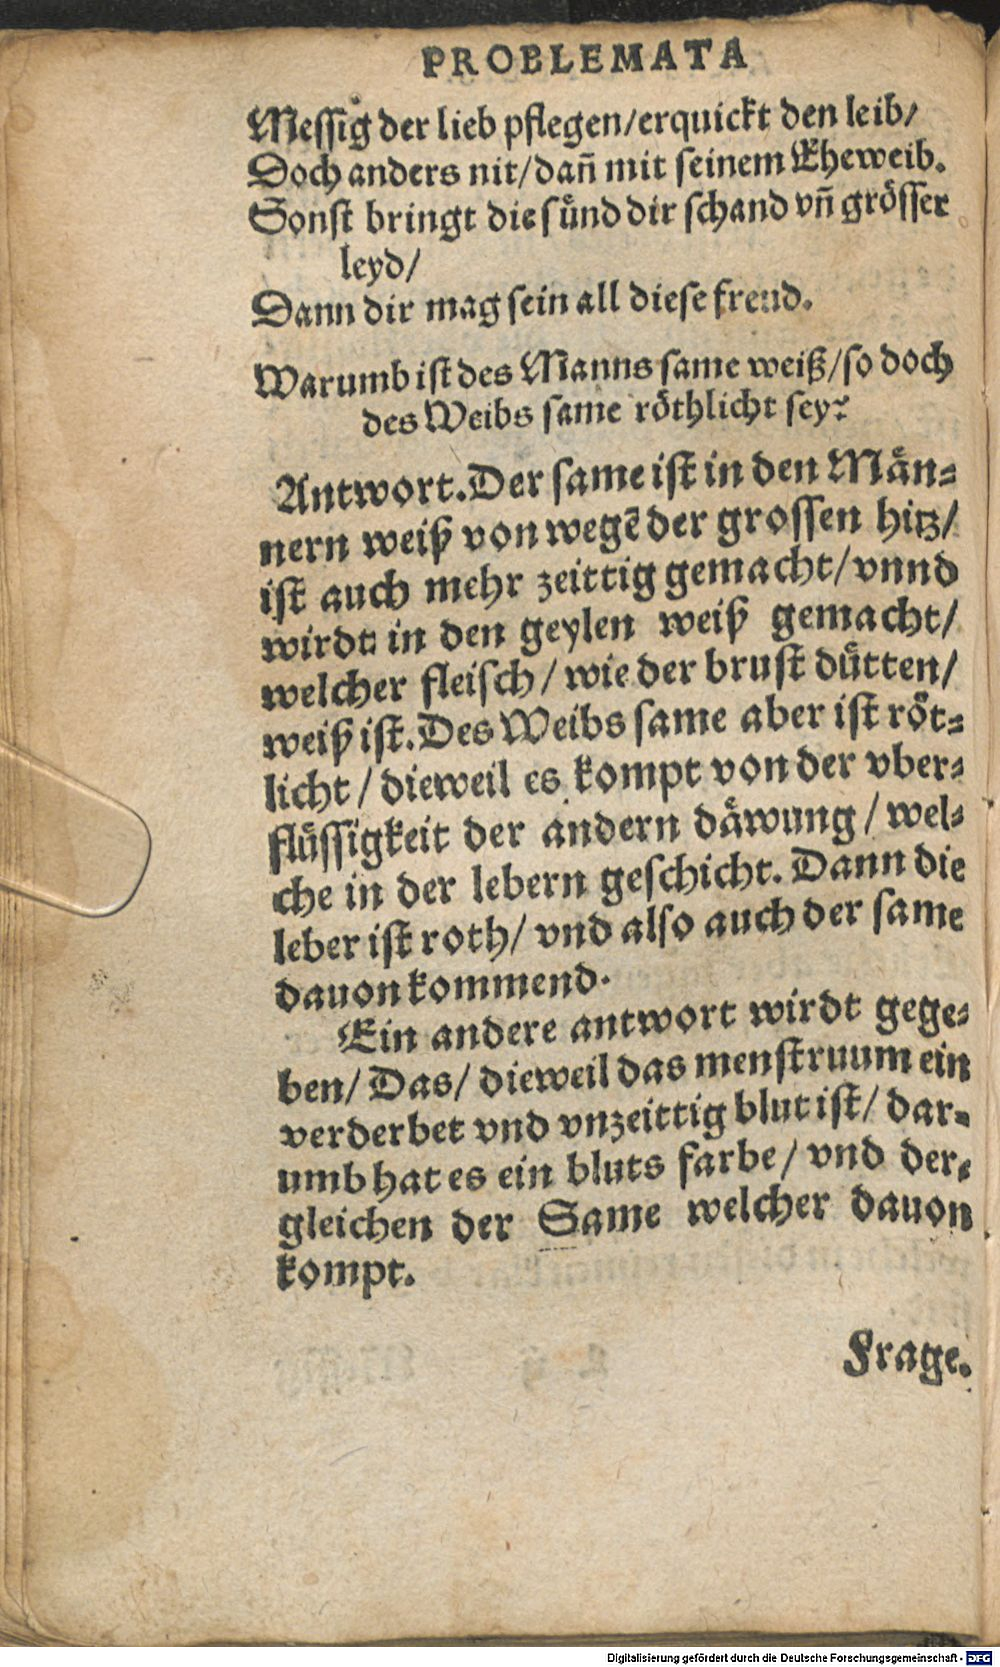 PROBLEMATA
Messig der lieb pflegen/erquickt den leib/
Doch anders nit/dañ mit seinem Eheweib.
Sonst bringt die sünd dir schand vñ grösser
leyd/
Dann dir mag sein all diese freud.
Warumb ist des Manns same weiß/so doch
des Weibs same röthlicht sey?
Antwort. Der same ist in den Män-
nern weiß von wegē der grossen hitz/
ist auch mehr zeittig gemacht/vnnd
wirdt in den geylen weiß gemacht/
welcher fleisch/wie der brust dütten/
weiß ist. Des Weibs same aber ist röt-
licht/dieweil es kompt von der vber-
flüssigkeit der andern däwung/wel-
che in der lebern geschicht. Dann die
leber ist roth/vnd also auch der same
dauon kommend.
Ein andere antwort wirdt gege-
ben/Das/dieweil das menstruum ein
verderbet vnd vnzeittig blut ist/dar-
umb hat es ein bluts farbe/vnd der-
gleichen der Same welcher dauon
kompt.
Frage.
Digitalisierung gefördert durch die Deutsche Forschungsgemeinschaft - DFG